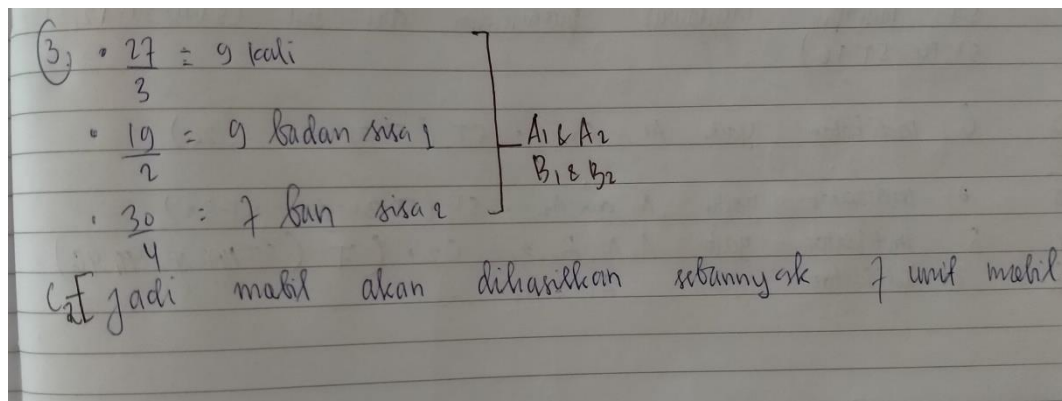 3, • 27/3 = 9 kali
• 19/2 = 9 badan sisa 1
• 30/4 = 7 ban sisa 2
A1 & A2
B1 & B2
C2 [ jadi mobil akan dihasilkan sebannyak 7 unit mobil